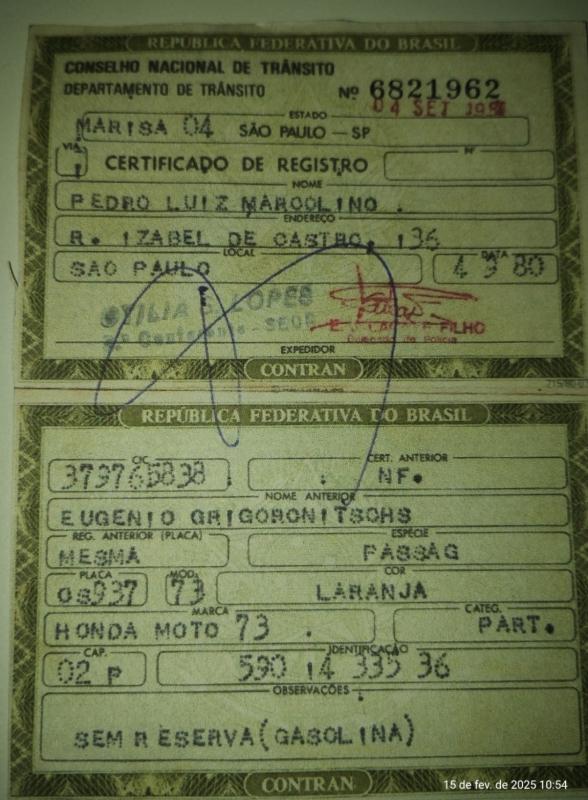 REPÚBLICA FEDERATIVA DO BRASIL
CONSELHO NACIONAL DE TRÂNSITO
DEPARTAMENTO DE TRÂNSITO Nº 6821962
04 SET
ESTADO
MARISA 04 SÃO PAULO – SP
VIA
1 CERTIFICADO DE REGISTRO Nº
NOME
PEDRO LUIZ MARCOLINO .
ENDEREÇO
R. IZABEL DE CASTRO, 136
LOCAL DATA
SAO PAULO 4 9 80
LOPES
FILHO
EXPEDIDOR
CONTRAN
REPÚBLICA FEDERATIVA DO BRASIL
CIC CERT. ANTERIOR
373765838 . NF.
NOME ANTERIOR
EUGENIO GRIGORONITSCHS
REG. ANTERIOR (PLACA) ESPÉCIE
MESMA PASSAG
PLACA MOD. COR
OS937 73 LARANJA
MARCA CATEG.
HONDA MOTO 73 . PART.
CAP. IDENTIFICAÇÃO
02 P 590 14 335 36
OBSERVAÇÕES
SEM RESERVA(GASOLINA)
CONTRAN
15 de fev. de 2025 10:54